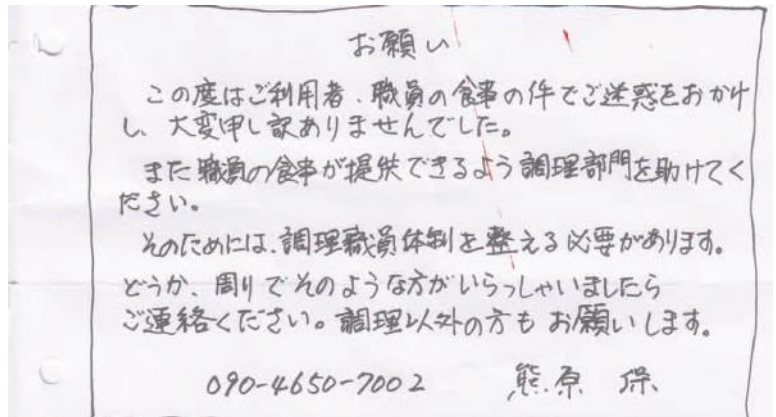 お願い
この度はご利用者、職員の食事の件でご迷惑をおかけ
し、大変申し訳ありませんでした。
また職員の食事が提供できるよう調理部門を助けてく
ださい。
そのためには、調理職員体制を整える必要があります。
どうか、周りでそのような方がいらっしゃいましたら
ご連絡ください。調理以外の方もお願いします。
090-4650-7002 熊原 保